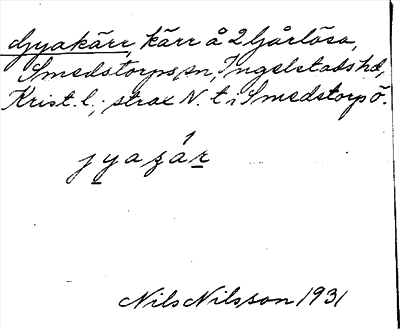 Gyakärr, kärr å 2 Gårlösa,
Smedstorps sn, Ingelstads hd,
Krist. l.; strax N. t i Smedstorp ö.
j y a z á r
Nils Nilsson 1931